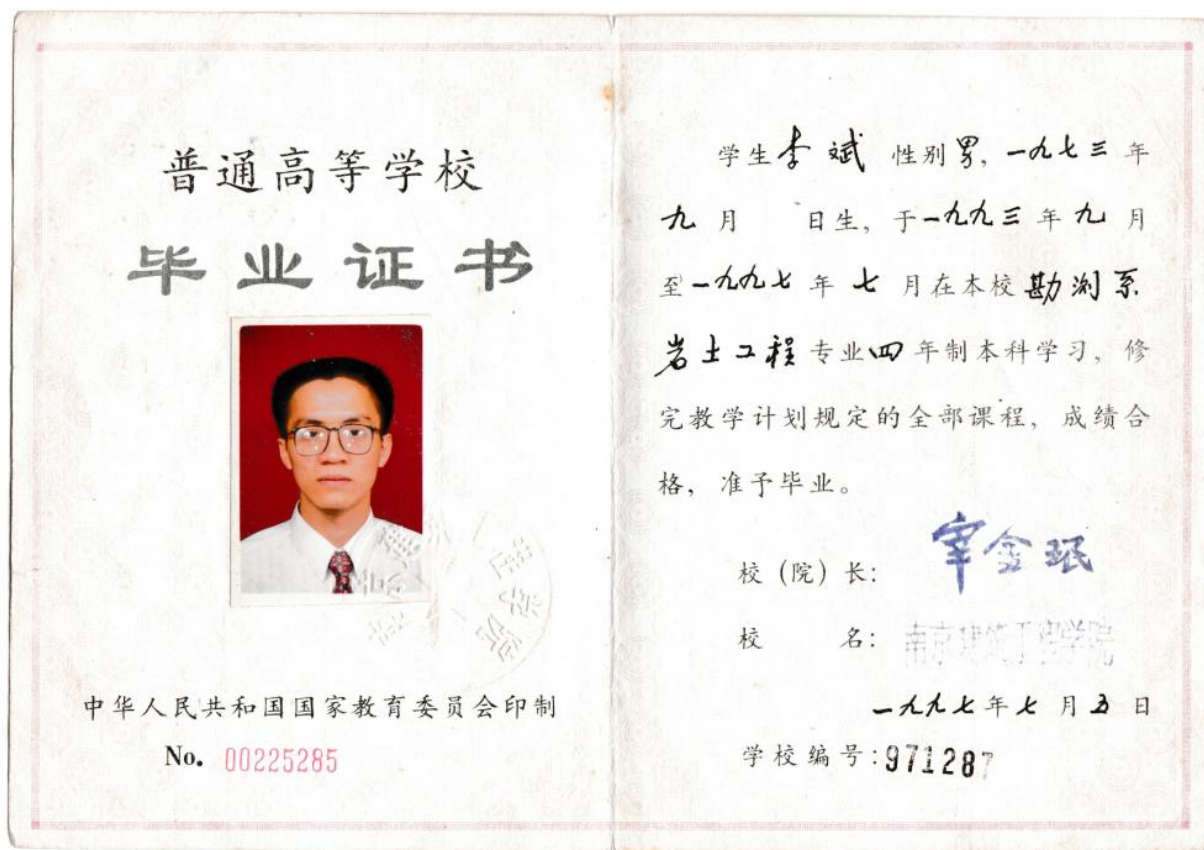 普通高等学校
毕业证书
中华人民共和国国家教育委员会印制
No. 00225285
学生李斌 性别男，一九七三年
九月 日生，于一九九三年九月
至一九九七年七月在本校勘测系
岩土工程专业四年制本科学习，修
完教学计划规定的全部课程，成绩合
格，准予毕业。
校（院）长：宰金珉
校 名：南京建筑工程学院
一九九七年七月五日
学校编号：971287